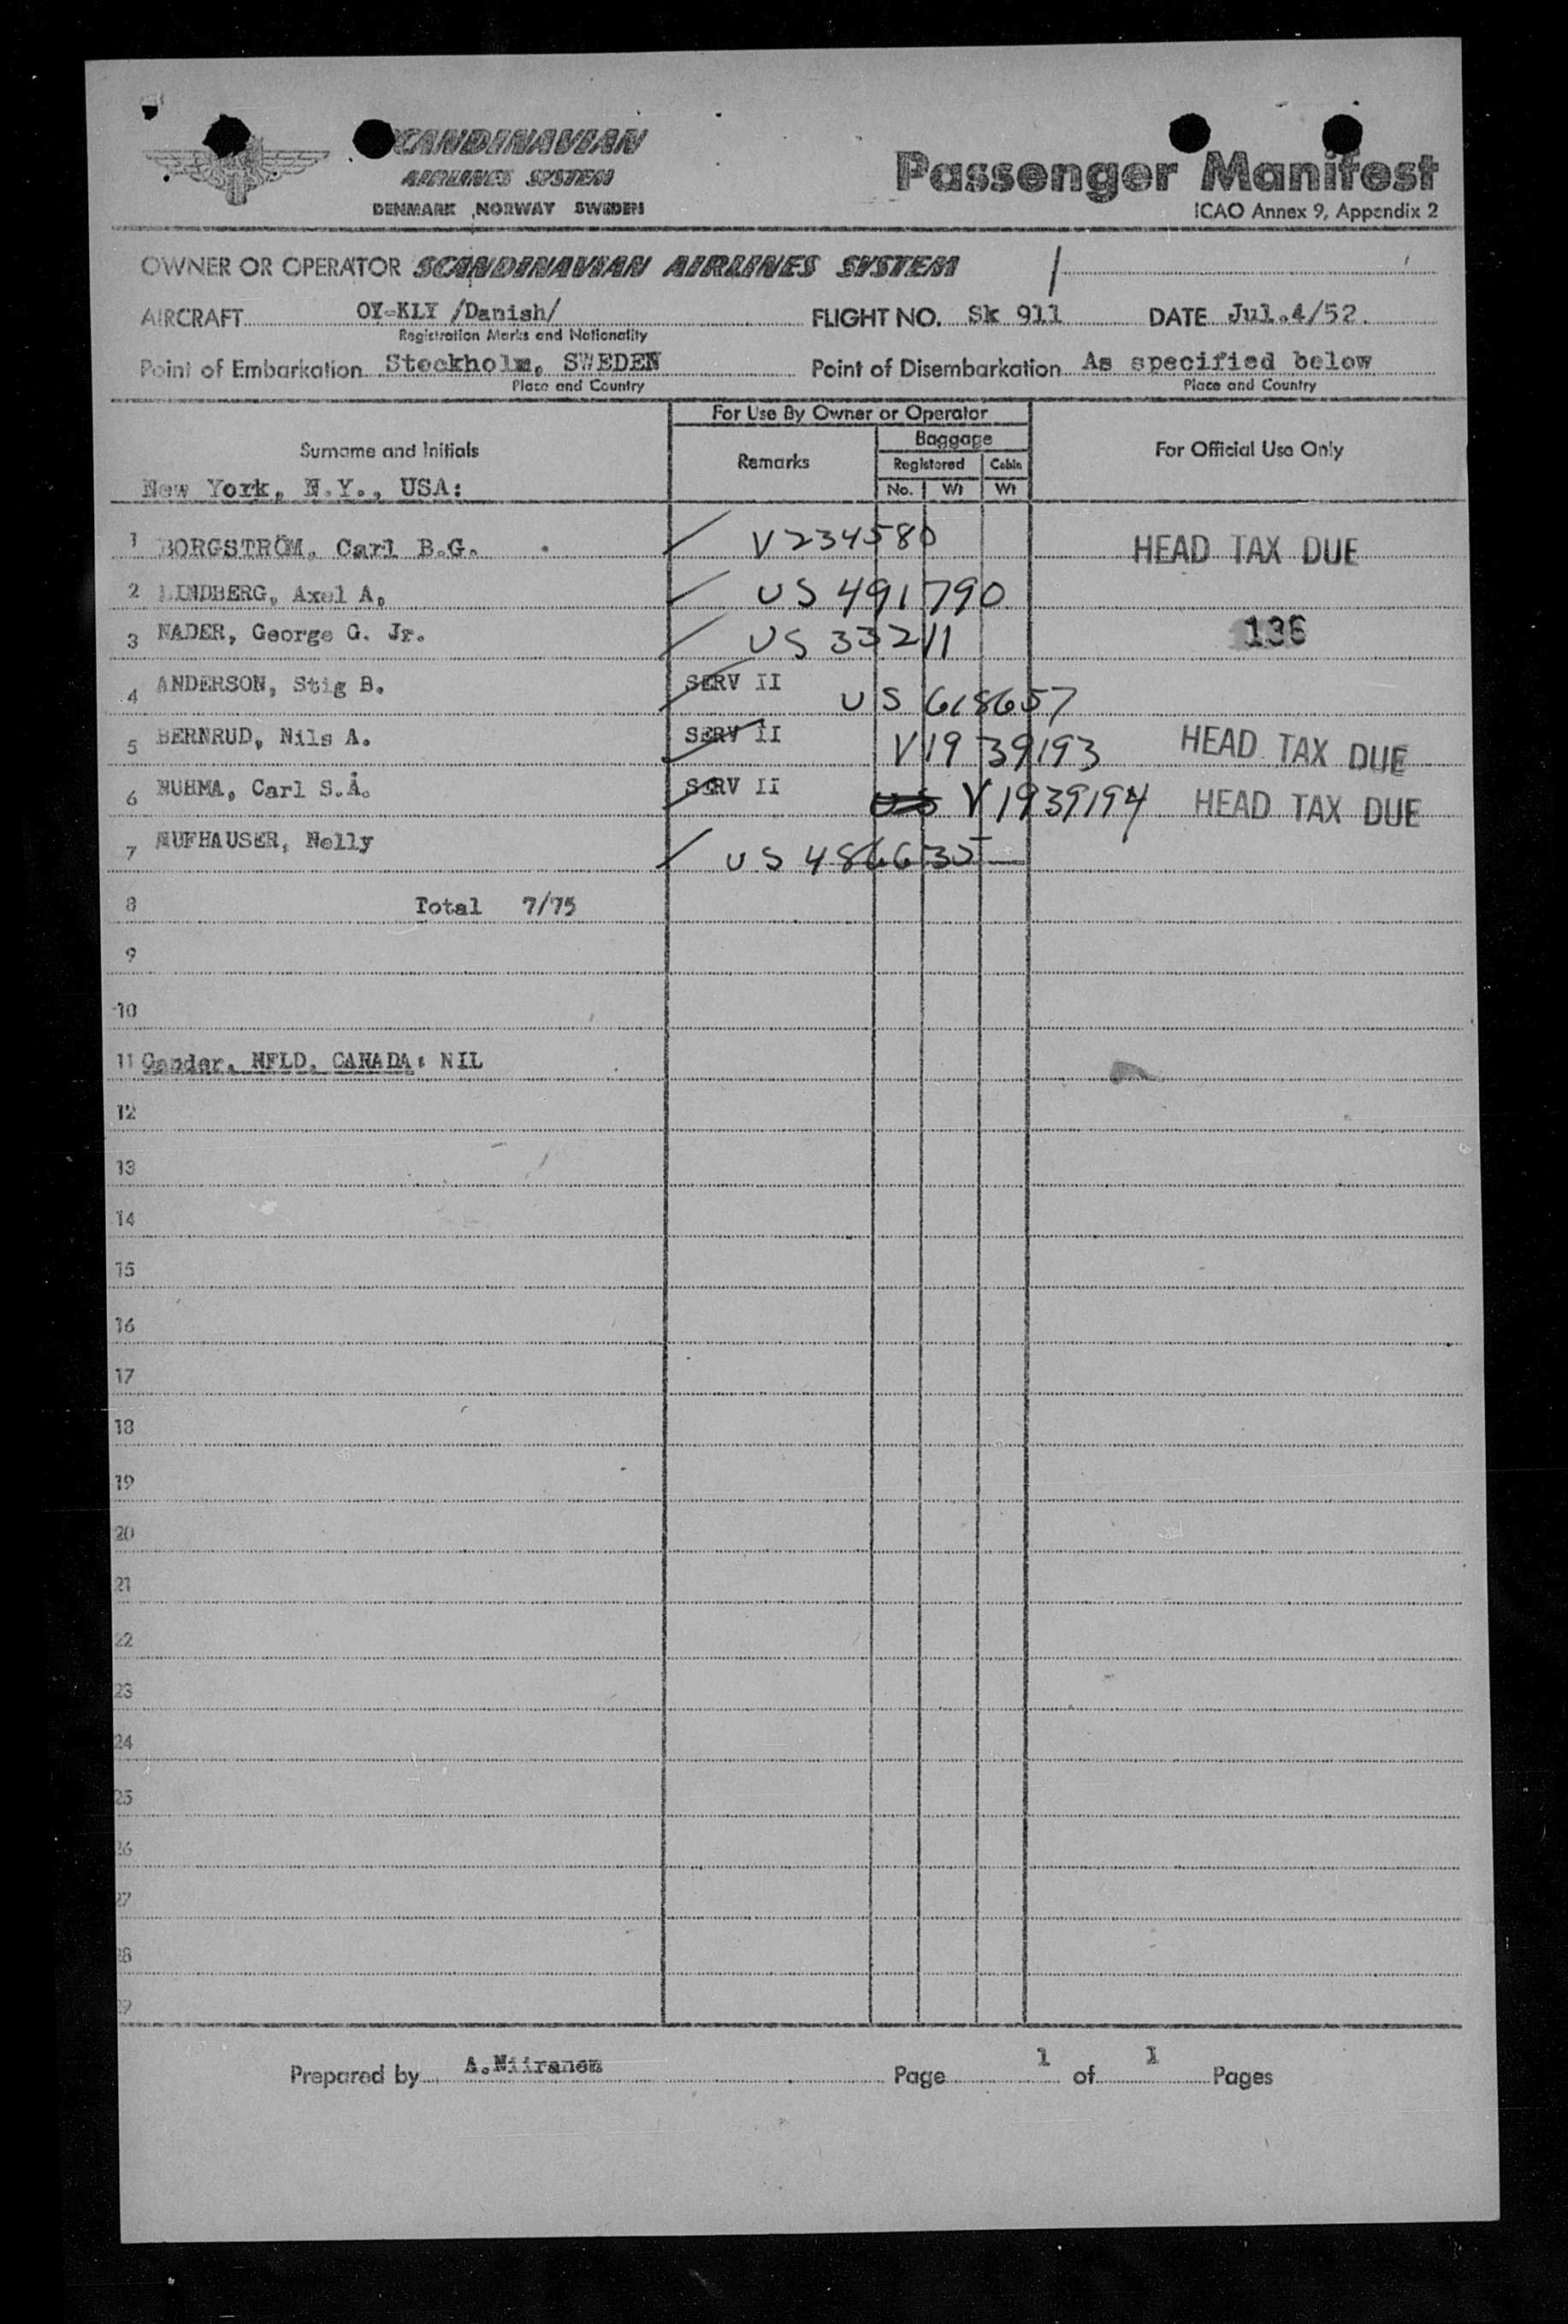 SCANDINAVIAN
AIRLINES SYSTEM
DENMARK NORWAY SWEDEN
Passenger Manifest
ICAO Annex 9, Appendix 2
OWNER OR OPERATOR SCANDINAVIAN AIRLINES SYSTEM /
AIRCRAFT OY-KLY /Danish/ FLIGHT NO. Sk 911 DATE Jul.4/52.
Registration Marks and Nationality
Point of Embarkation Stockholm, SWEDEN Point of Disembarkation As specified below
Place and Country Place and Country
For Use By Owner or Operator
Surname and Initials Remarks Baggage For Official Use Only
Registered Cabin
New York, N.Y., USA: No. Wt Wt
1 BORGSTRÖM, Carl B.G. V234580 HEAD TAX DUE
2 LINDBERG, Axel A. US 491790
3 NADER, George G. Jr. US 33211 136
4 ANDERSON, Stig B. SERV II US 618657
5 BERNRUD, Nils A. SERV II V1939193 HEAD TAX DUE
6 NUHMA, Carl S.Å. SERV II V1939194 HEAD TAX DUE
7 NUFHAUSER, Nelly US 486635
8 Total 7/75
9
10
11 Gander, NFLD, CANADA: NIL
12
13
14
15
16
17
18
19
20
21
22
23
24
25
26
27
28
29
Prepared by A.Niiranen Page 1 of 1 Pages